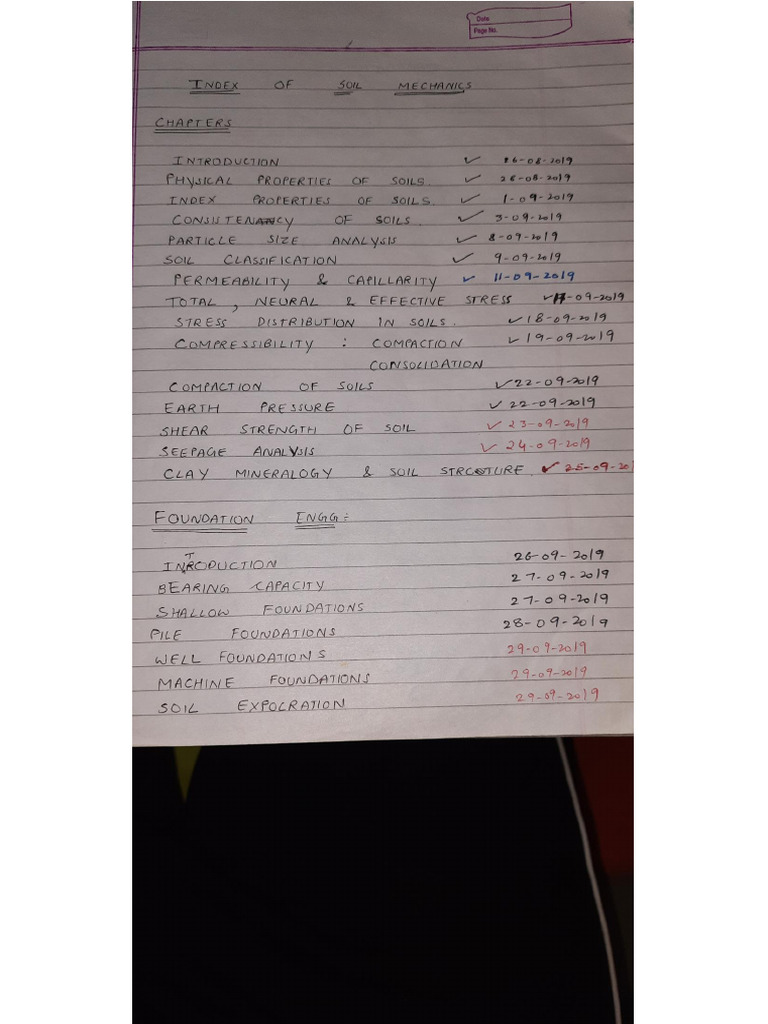 Date
Page No.
INDEX OF SOIL MECHANICS
CHAPTERS
INTRODUCTION ✓ 26-08-2019
PHYSICAL PROPERTIES OF SOILS. ✓ 28-08-2019
INDEX PROPERTIES OF SOILS. ✓ 1-09-2019
CONSISTENCY OF SOILS. ✓ 3-09-2019
PARTICLE SIZE ANALYSIS ✓ 8-09-2019
SOIL CLASSIFICATION ✓ 9-09-2019
PERMEABILITY & CAPILLARITY ✓ 11-09-2019
TOTAL, NEURAL & EFFECTIVE STRESS ✓ 17-09-2019
STRESS DISTRIBUTION IN SOILS. ✓ 18-09-2019
COMPRESSIBILITY : COMPACTION ✓ 19-09-2019
CONSOLIDATION
COMPACTION OF SOILS ✓ 22-09-2019
EARTH PRESSURE ✓ 22-09-2019
SHEAR STRENGTH OF SOIL ✓ 23-09-2019
SEEPAGE ANALYSIS ✓ 24-09-2019
CLAY MINERALOGY & SOIL STRCTURE. ✓ 25-09-201
FOUNDATION ENGG:
INTRODUCTION 26-09-2019
BEARING CAPACITY 27-09-2019
SHALLOW FOUNDATIONS 27-09-2019
PILE FOUNDATIONS 28-09-2019
WELL FOUNDATIONS 29-09-2019
MACHINE FOUNDATIONS 29-09-2019
SOIL EXPOLRATION 29-09-2019